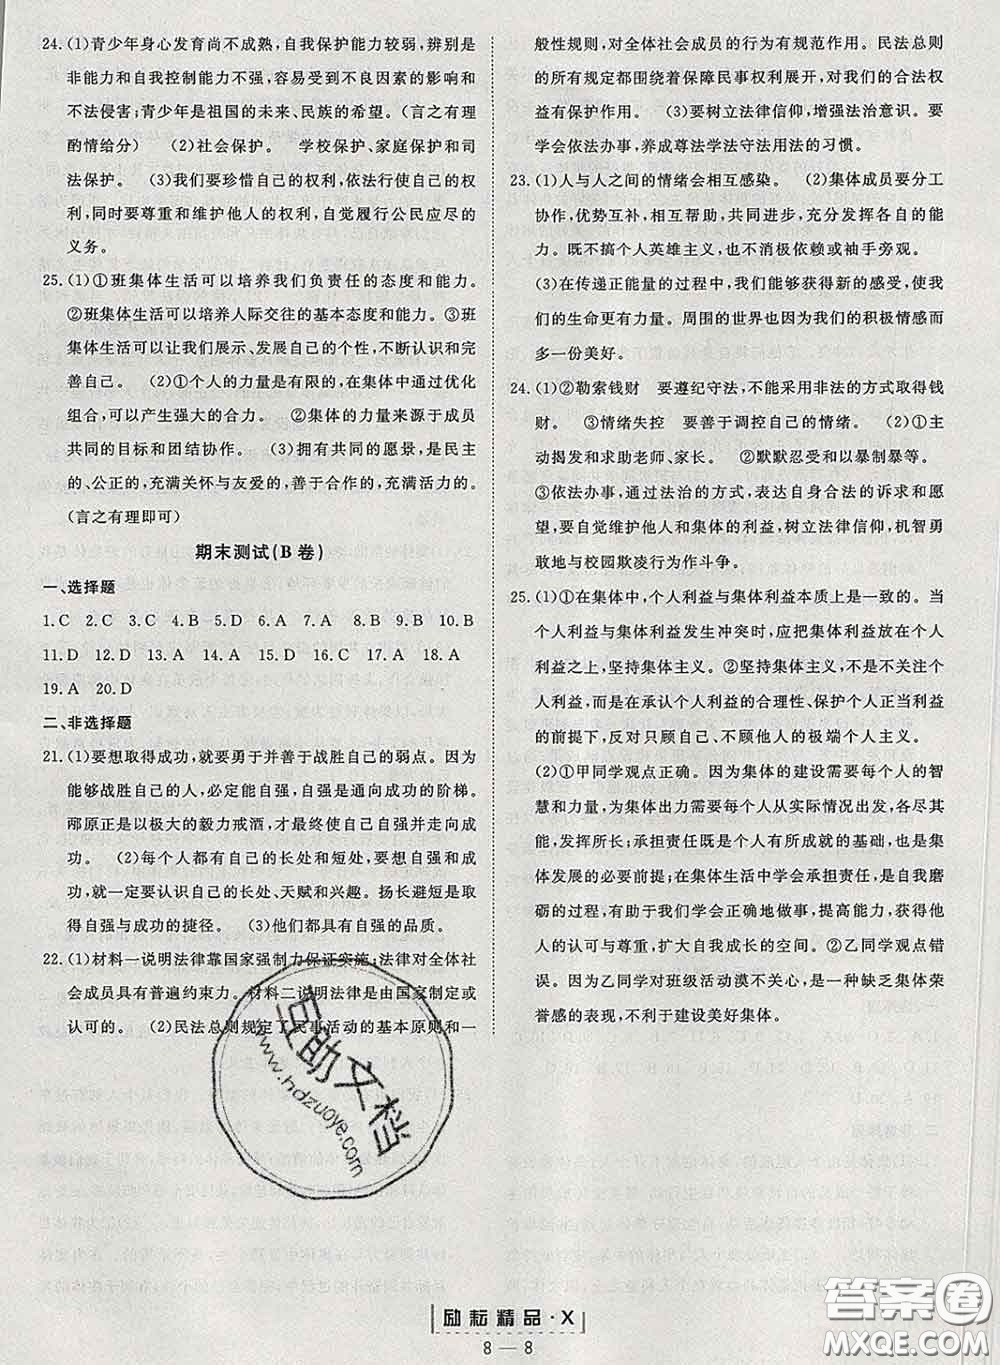 24.(1)青少年身心发育尚不成熟,自我保护能力较弱,辨别是
非能力和自我控制能力不强,容易受到不良因素的影响和
不法侵害;青少年是祖国的未来、民族的希望。(言之有理
酌情给分) (2)社会保护。 学校保护、家庭保护和司
法保护。 (3)我们要珍惜自己的权利,依法行使自己的权
利,同时要尊重和维护他人的权利,自觉履行公民应尽的
义务。
25.(1)①班集体生活可以培养我们负责任的态度和能力。
②班集体生活可以培养人际交往的基本态度和能力。③班
集体生活可以让我们展示、发展自己的个性,不断认识和完
善自己。 (2)①个人的力量是有限的,在集体中通过优化
组合,可以产生强大的合力。 ②集体的力量来源于成员
共同的目标和团结协作。 (3)拥有共同的愿景,是民主
的、公正的,充满关怀与友爱的,善于合作的,充满活力的。
(言之有理即可)
期末测试(B卷)
一、选择题
1.C 2.C 3.C 4.B 5.D 6.A 7.B 8.B 9.B 10.B
11.D 12.D 13.A 14.A 15.B 16.C 17.A 18.A
19.A 20.D
二、非选择题
21.(1)要想取得成功,就要勇于并善于战胜自己的弱点。因为
能够战胜自己的人,必定能自强,自强是通向成功的阶梯。
邴原正是以极大的毅力戒酒,才最终使自己自强并走向成
功。 (2)每个人都有自己的长处和短处,要想自强和成
功,就一定要认识自己的长处、天赋和兴趣。扬长避短是取
得自强与成功的捷径。 (3)他们都具有自强的品质。
22.(1)材料一说明法律靠国家强制力保证实施;法律对全体社
会成员具有普遍约束力。材料二说明法律是由国家制定或
认可的。 (2)民法总则规定了民事活动的基本原则和一
般性规则,对全体社会成员的行为有规范作用。民法总则
的所有规定都围绕着保障民事权利展开,对我们的合法权
益有保护作用。 (3)要树立法律信仰,增强法治意识。要
学会依法办事,养成尊法学法守法用法的习惯。
23.(1)人与人之间的情绪会相互感染。 (2)集体成员要分工
协作,优势互补,相互帮助,共同进步,充分发挥各自的能
力。既不搞个人英雄主义,也不消极依赖或袖手旁观。
(3)在传递正能量的过程中,我们能够获得新的感受,使我
们的生命更有力量。周围的世界也因为我们的积极情感而
多一份美好。
24.(1)②勒索钱财 要遵纪守法,不能采用非法的方式取得钱
财。 ③情绪失控 要善于调控自己的情绪。 (2)①主
动揭发和求助老师、家长。 ②默默忍受和以暴制暴等。
③依法办事,通过法治的方式,表达自身合法的诉求和愿
望,要自觉维护他人和集体的利益,树立法律信仰,机智勇
敢地与校园欺凌行为作斗争。
25.(1)①在集体中,个人利益与集体利益本质上是一致的。当
个人利益与集体利益发生冲突时,应把集体利益放在个人利
益之上,坚持集体主义。②坚持集体主义,不是不关注个
人利益,而是在承认个人利益的合理性、保护个人正当利益
的前提下,反对只顾自己、不顾他人的极端个人主义。
(2)①甲同学观点正确。因为集体的建设需要每个人的智
慧和力量,为集体出力需要每个人从实际情况出发,发挥所
能,发挥所长;承担责任既是个人有所成就的基础,也是集
体发展的必要前提;在集体生活中学会承担责任,是自我磨
砺的过程,有助于我们学会正确地做事,提高能力,获得他
人的认可与尊重,扩大自我成长的空间。②乙同学观点错
误。因为乙同学对班级活动漠不关心,是一种缺乏集体荣
誉感的表现,不利于建设美好集体。
互助文档
www.hdzuoye.com
励耘精品·X
8—8
答案圈
MXQE.COM